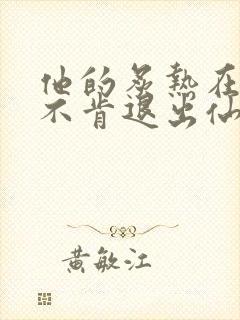 他的炙热在
不肯退出仙
黄敏江